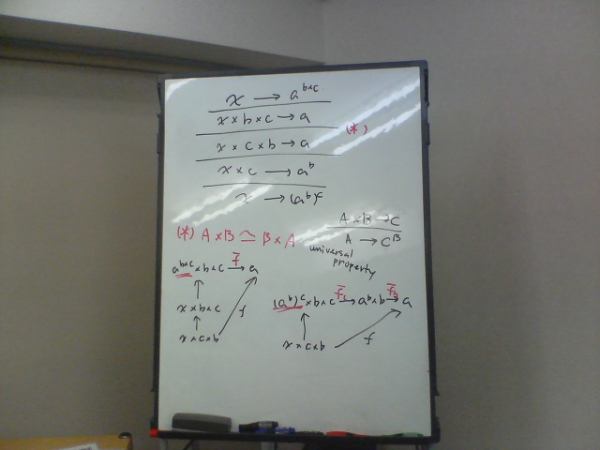 x → a^{b×c}
x × b × c → a
(*)
x × c × b → a
x × c → a^b
x → (a^b)^c
(*) A × B ≅ B × A
A × B → C
A → C^B
universal property
a^{b×c} × b × c → a
f̄
x × b × c
f
x × c × b
(a^b)^c × b × c → a^b × b → a
x × c × b
f